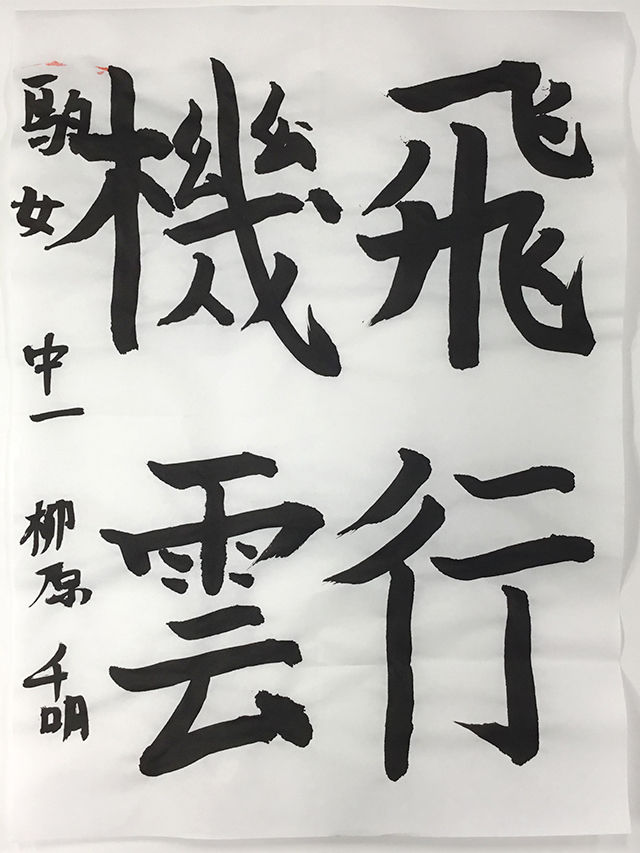 飛行
機雲
駒女 中一 柳原 千明